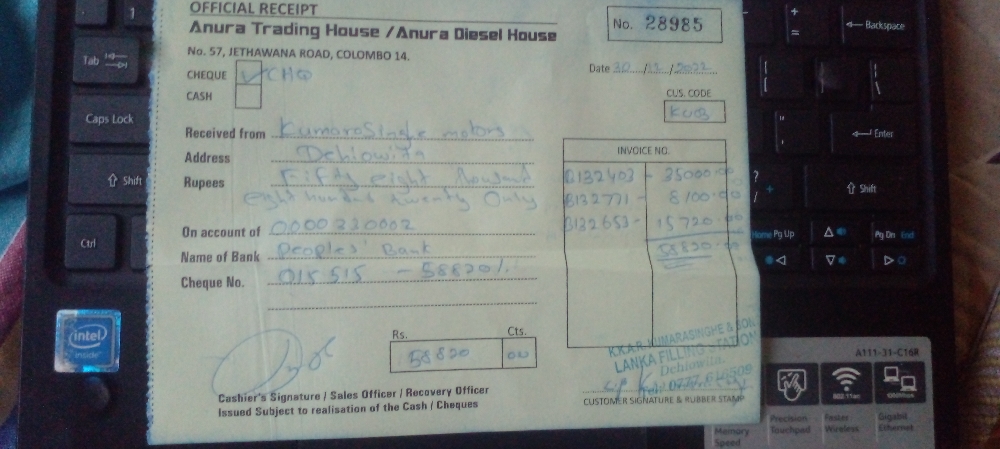 OFFICIAL RECEIPT
Anura Trading House / Anura Diesel House
No. 28985
No. 57, JETHAWANA ROAD, COLOMBO 14.
CHEQUE ✓ CHQ
CASH
Date 30/12/2022
CUS. CODE
KU03
Received from KumaraSinghe motors
Address Dehiowita
Rupees Fifty eight thousand
eight hundred twenty Only
On account of 0000330002
Name of Bank Peoples' Bank
Cheque No. 015515 - 58820/.
INVOICE NO.
B132403 - 35000.00
B132771 - 8100.00
B132653 - 15720.00
58820.00
Rs. Cts.
58820 00
Cashier's Signature / Sales Officer / Recovery Officer
Issued Subject to realisation of the Cash / Cheques
K.K.A.R. KUMARASINGHE & SON
LANKA FILLING STATION
Dehiowita.
CUSTOMER SIGNATURE & RUBBER STAMP
Tab
1
Caps Lock
Shift
Ctrl
intel
inside
+
=
Backspace
{
[
}
]
|
\
"
'
Enter
?
/
Shift
Home Pg Up
Pg Dn End
A111-31-C16R
802.11ac
1000Mbps
Memory Speed
Precision Touchpad
Faster Wireless
Gigabit Ethernet